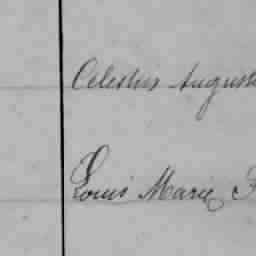 Celestus August
Louis Marie